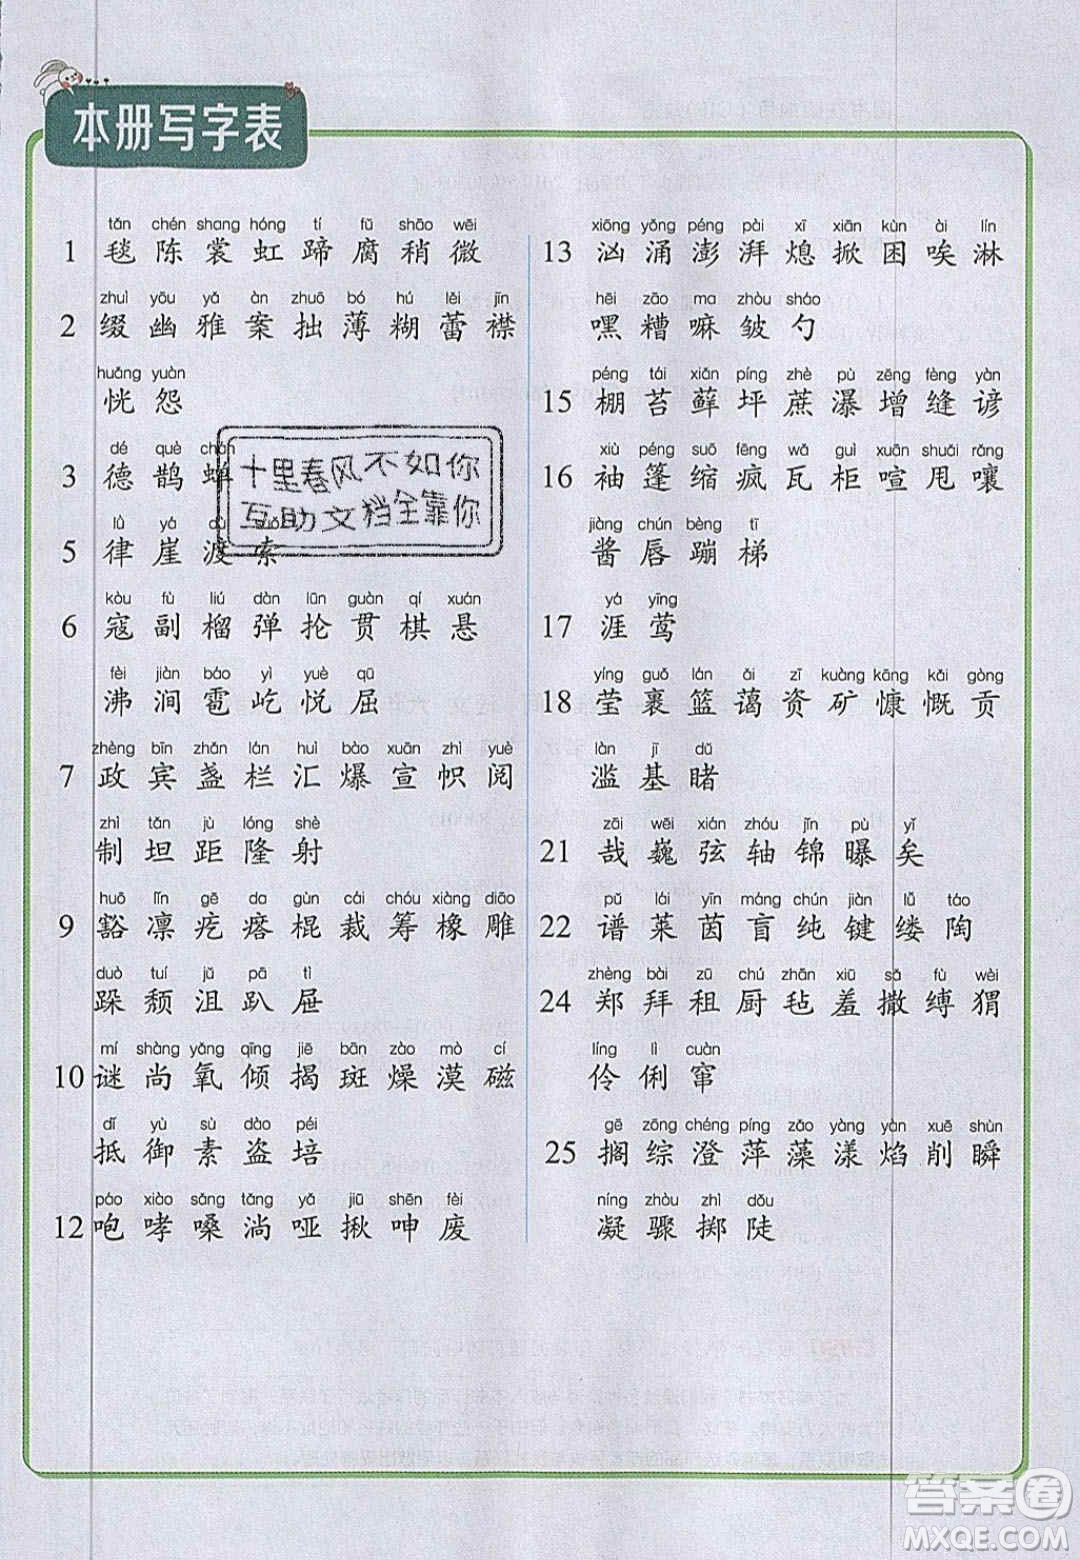 本册写字表
tǎn chén shang hóng tí fǔ shāo wēi
1 毯 陈 裳 虹 蹄 腐 稍 微
zhuì yōu yǎ àn zhuō bó hú lěi jīn
2 缀 幽 雅 案 拙 薄 糊 蕾 襟
huǎng yuàn
恍 怨
dé què chán
3 德 鹊 蝉
十里春风不如你
互助文档全靠你
lǜ yá dù
5 律 崖 渡 索
kòu fù liú dàn lūn guàn qí xuán
6 寇 副 榴 弹 抡 贯 棋 悬
fèi jiàn báo yì yuè qū
沸 涧 雹 屹 悦 屈
zhèng bīn zhǎn lán huì bào xuān zhì yuè
7 政 宾 盏 栏 汇 爆 宣 帜 阅
zhì tǎn jù lóng shè
制 坦 距 隆 射
huō lǐn gē da gùn cái chóu xiàng diāo
9 豁 凛 疙 瘩 棍 裁 筹 橡 雕
duò tuí jǔ pā tì
跺 颓 沮 趴 屉
mí shàng yǎng qīng jiē bān zào mò cí
10 谜 尚 氧 倾 揭 斑 燥 漠 磁
dǐ yù sù dào péi
抵 御 素 盗 培
páo xiào sǎng tǎng yǎ jiū shēn fèi
12 咆 哮 嗓 淌 哑 揪 呻 废
xiōng yǒng péng pài xī xiān kùn ài lín
13 汹 涌 澎 湃 熄 掀 困 唉 淋
hēi zāo ma zhòu sháo
嘿 糟 嘛 皱 勺
péng tái xiǎn píng zhè pù zēng fèng yàn
15 棚 苔 藓 坪 蔗 瀑 增 缝 谚
xiù péng suō fēng wǎ guì xuān shuǎi rǎng
16 袖 篷 缩 疯 瓦 柜 喧 甩 嚷
jiàng chún bèng tī
酱 唇 蹦 梯
yá yīng
17 涯 莺
yíng guǒ lán ǎi zī kuàng kāng kǎi gòng
18 莹 裹 篮 蔼 资 矿 慷 慨 贡
làn jī dǔ
滥 基 睹
zāi wēi xián zhóu jǐn pù yǐ
21 哉 巍 弦 轴 锦 曝 矣
pǔ lái yīn máng chún jiàn lǚ táo
22 谱 莱 茵 盲 纯 键 缕 陶
zhèng bài zū chú zhān xiū sā fù wèi
24 郑 拜 租 厨 毡 羞 撒 缚 猬
líng lì cuàn
伶 俐 窜
gē zōng chéng píng zǎo yàng yàn xuē shùn
25 搁 综 澄 萍 藻 漾 焰 削 瞬
níng zhòu zhì dǒu
凝 骤 掷 陡
答案圈
MXQE.COM